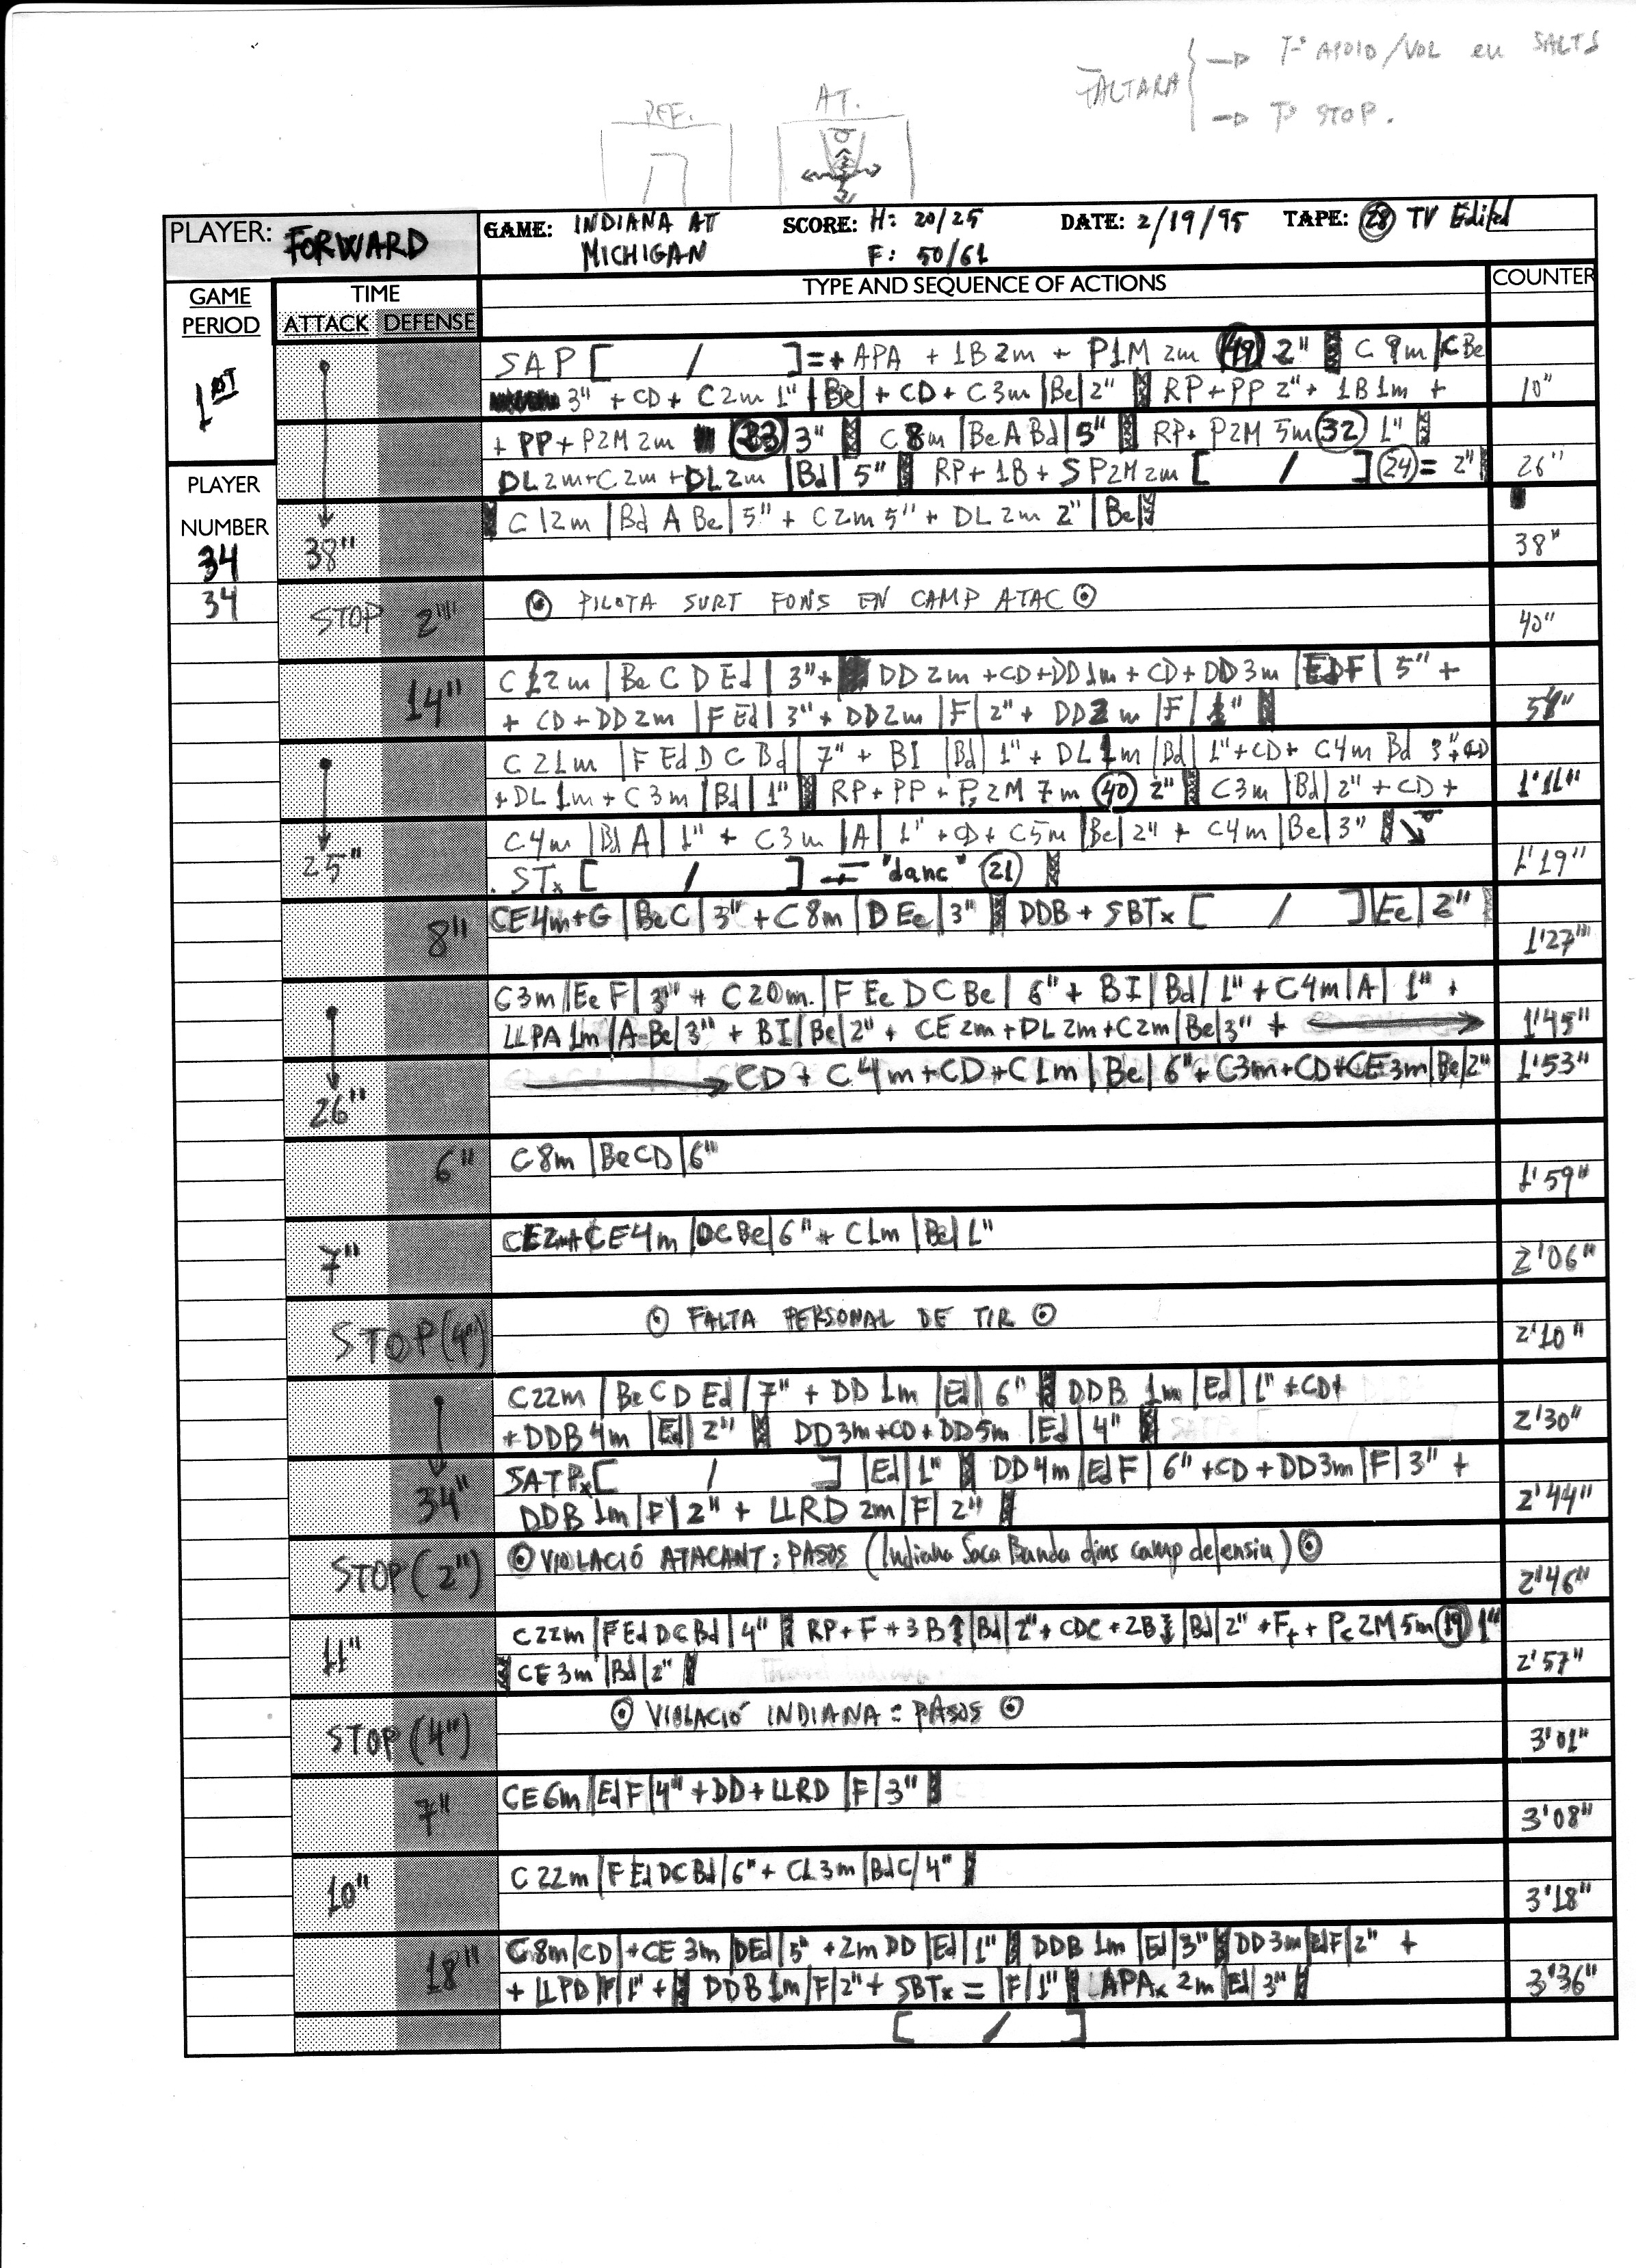 FALTARA → Tº APOIO/VOL en SALTS
→ Tº STOP.
DEF. AT.
PLAYER: FORWARD GAME: INDIANA AT MICHIGAN SCORE: H: 20/25 F: 50/61 DATE: 2/19/95 TAPE: 28 TV Edited
GAME PERIOD TIME TYPE AND SEQUENCE OF ACTIONS COUNTER
ATTACK DEFENSE
1ST
SAP [ / ] = + APA + 1B 2m + P1M 2m (49) 2" C 9m | C Be
3" + CD + C2m 1" | Be | + CD + C3m | Be | 2" RP + PP 2" + 1B 1m + 10"
+ PP + P2M 2m (23) 3" C 8m | Be A Bd | 5" RP + P2M 5m (32) 1"
PLAYER NUMBER 34
DL 2m + C 2m + DL 2m | Bd | 5" RP + 1B + S P2M 2m [ / ] (24) = 2" 26"
C 12m | Bd A Be | 5" + C2m 5" + DL 2m 2" | Be |
38" 38"
34 STOP 2" PILOTA SURT FONS EN CAMP ATAC
40"
14" C 12m | Be C D Ed | 3" + DD 2m + CD + DD 1m + CD + DD 3m | Ed F | 5" +
+ CD + DD 2m | F Ed | 3" + DD 2m | F | 2" + DD 2m | F | 1"
C 21m | F Ed D C Bd | 7" + BI | Bd | 1" + DL 1m | Bd | 1" + CD + C4m Bd 3" + CD
+ DL 1m + C 3m | Bd | 1" RP + PP + P 2M 7m (40) 2" C3m | Bd | 2" + CD + 1'11"
25" C4m | Bd A | 1" + C3m | A | 1" + CD + C5m | Be | 2" + C4m | Be | 3"
STx [ / ] = "danc" (21) 1'19"
8" CE 4m + G | Be C | 3" + C 8m | D Ee | 3" DDB + SBTx [ / ] | Ee | 2"
1'27"
C3m | Ee F | 3" + C20m | F Ee D C Be | 6" + BI | Bd | 1" + C4m | A | 1" +
LLPA 1m | A Be | 3" + BI | Be | 2" + CE 2m + DL 2m + C2m | Be | 3" + → 1'45"
26" → CD + C4m + CD + C1m | Be | 6" + C3m + CD + CE 3m | Be | 2" 1'53"
6" C 8m | Be CD | 6"
1'59"
7" CE 2m + CE 4m | DC Be | 6" + C1m | Be | 1"
2'06"
STOP (4") FALTA PERSONAL DE TIR
2'10"
C22m | Be C D Ed | 7" + DD 1m | Ed | 6" DDB 1m | Ed | 1" + CD +
+ DDB 4m | Ed | 2" DD 3m + CD + DD 5m | Ed | 4" 2'30"
34" SATPx [ / ] | Ed | 1" DD 4m | Ed F | 6" + CD + DD 3m | F | 3" +
DDB 1m | F | 2" + LLRD 2m | F | 2" 2'44"
STOP (2") VIOLACIÓ ATACANT: PASOS (Indiana Saca Banda dins camp defensiu)
2'46"
11" C22m | F Ed DC Bd | 4" RP + F + 3B | Bd | 2" + CDC + 2B | Bd | 2" + Ft + Pc 2M 5m (19) 1"
CE 3m | Bd | 2" 2'57"
STOP (4") VIOLACIÓ INDIANA: PASOS
3'01"
7" CE 6m | Ed F | 4" + DD + LLRD | F | 3"
3'08"
10" C 22m | F Ed DC Bd | 6" + CL 3m | Bd C | 4"
3'18"
18" C 8m | CD | + CE 3m | D Ed | 5" + 2m DD | Ed | 1" DDB 1m | Ed | 3" DD 3m | Ed F | 2" +
+ LLPD | F | 1" + DDB 1m | F | 2" + SBTx = | F | 1" APAx 2m | Ed | 3" 3'36"
[ / ]